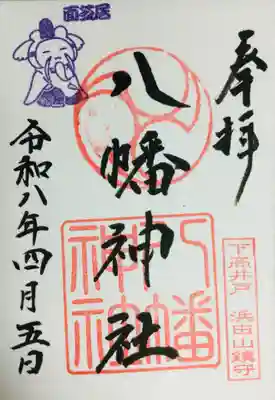 奉拝
下高井戸 浜田山鎮守
八幡神社
八幡神社
令和八年四月五日
面芝居